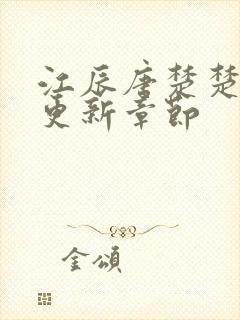 江辰唐楚楚
更新章節
金頌